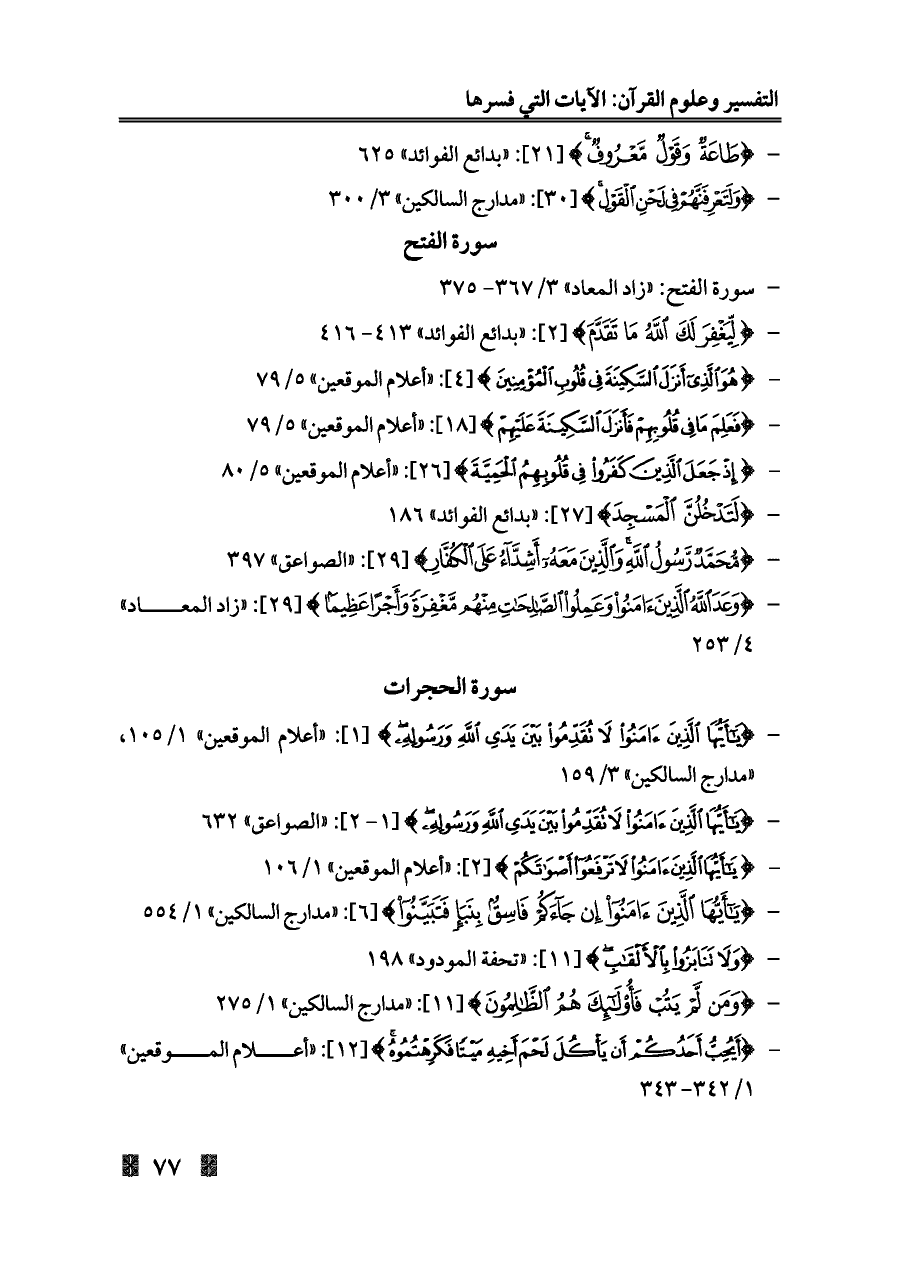 التفسير وعلوم القرآن: الآيات التي فسرها
- ﴿طَاعَةٌ وَقَوْلٌ مَّعْرُوفٌ ۚ﴾ [٢١]: «بدائع الفوائد» ٦٢٥
- ﴿وَلَتَعْرِفَنَّهُمْ فِي لَحْنِ الْقَوْلِ ۚ﴾ [٣٠]: «مدارج السالكين» ٣/ ٣٠٠
سورة الفتح
- سورة الفتح: «زاد المعاد» ٣/ ٣٦٧- ٣٧٥
- ﴿لِّيَغْفِرَ لَكَ ٱللَّهُ مَا تَقَدَّمَ﴾ [٢]: «بدائع الفوائد» ٤١٣- ٤١٦
- ﴿هُوَ ٱلَّذِىٓ أَنزَلَ ٱلسَّكِينَةَ فِى قُلُوبِ ٱلْمُؤْمِنِينَ﴾ [٤]: «أعلام الموقعين» ٥/ ٧٩
- ﴿فَعَلِمَ مَا فِى قُلُوبِهِمْ فَأَنزَلَ ٱلسَّكِينَةَ عَلَيْهِمْ﴾ [١٨]: «أعلام الموقعين» ٥/ ٧٩
- ﴿إِذْ جَعَلَ ٱلَّذِينَ كَفَرُوا۟ فِى قُلُوبِهِمُ ٱلْحَمِيَّةَ﴾ [٢٦]: «أعلام الموقعين» ٥/ ٨٠
- ﴿لَتَدْخُلُنَّ ٱلْمَسْجِدَ﴾ [٢٧]: «بدائع الفوائد» ١٨٦
- ﴿مُّحَمَّدٌ رَّسُولُ ٱللَّهِ ۚ وَٱلَّذِينَ مَعَهُۥٓ أَشِدَّآءُ عَلَى ٱلْكُفَّارِ﴾ [٢٩]: «الصواعق» ٣٩٧
- ﴿وَعَدَ ٱللَّهُ ٱلَّذِينَ ءَامَنُوا۟ وَعَمِلُوا۟ ٱلصَّٰلِحَٰتِ مِنْهُم مَّغْفِرَةً وَأَجْرًا عَظِيمًا﴾ [٢٩]: «زاد المعـــاد»
٤/ ٢٥٣
سورة الحجرات
- ﴿يَٰٓأَيُّهَا ٱلَّذِينَ ءَامَنُوا۟ لَا تُقَدِّمُوا۟ بَيْنَ يَدَىِ ٱللَّهِ وَرَسُولِهِۦ ۖ﴾ [١]: «أعلام الموقعين» ١/ ١٠٥،
«مدارج السالكين» ٣/ ١٥٩
- ﴿يَٰٓأَيُّهَا ٱلَّذِينَ ءَامَنُوا۟ لَا تُقَدِّمُوا۟ بَيْنَ يَدَىِ ٱللَّهِ وَرَسُولِهِۦ ۖ﴾ [١- ٢]: «الصواعق» ٦٣٢
- ﴿يَٰٓأَيُّهَا ٱلَّذِينَ ءَامَنُوا۟ لَا تَرْفَعُوٓا۟ أَصْوَٰتَكُمْ﴾ [٢]: «أعلام الموقعين» ١/ ١٠٦
- ﴿يَٰٓأَيُّهَا ٱلَّذِينَ ءَامَنُوٓا۟ إِن جَآءَكُمْ فَاسِقٌۢ بِنَبَإٍ فَتَبَيَّنُوٓا۟﴾ [٦]: «مدارج السالكين» ١/ ٥٥٤
- ﴿وَلَا تَنَابَزُوا۟ بِٱلْأَلْقَٰبِ ۖ﴾ [١١]: «تحفة المودود» ١٩٨
- ﴿وَمَن لَّمْ يَتُبْ فَأُو۟لَٰٓئِكَ هُمُ ٱلظَّٰلِمُونَ﴾ [١١]: «مدارج السالكين» ١/ ٢٧٥
- ﴿أَيُحِبُّ أَحَدُكُمْ أَن يَأْكُلَ لَحْمَ أَخِيهِ مَيْتًا فَكَرِهْتُمُوهُ ۚ﴾ [١٢]: «أعـــلام المـــوقعين»
١/ ٣٤٢- ٣٤٣
٧٧